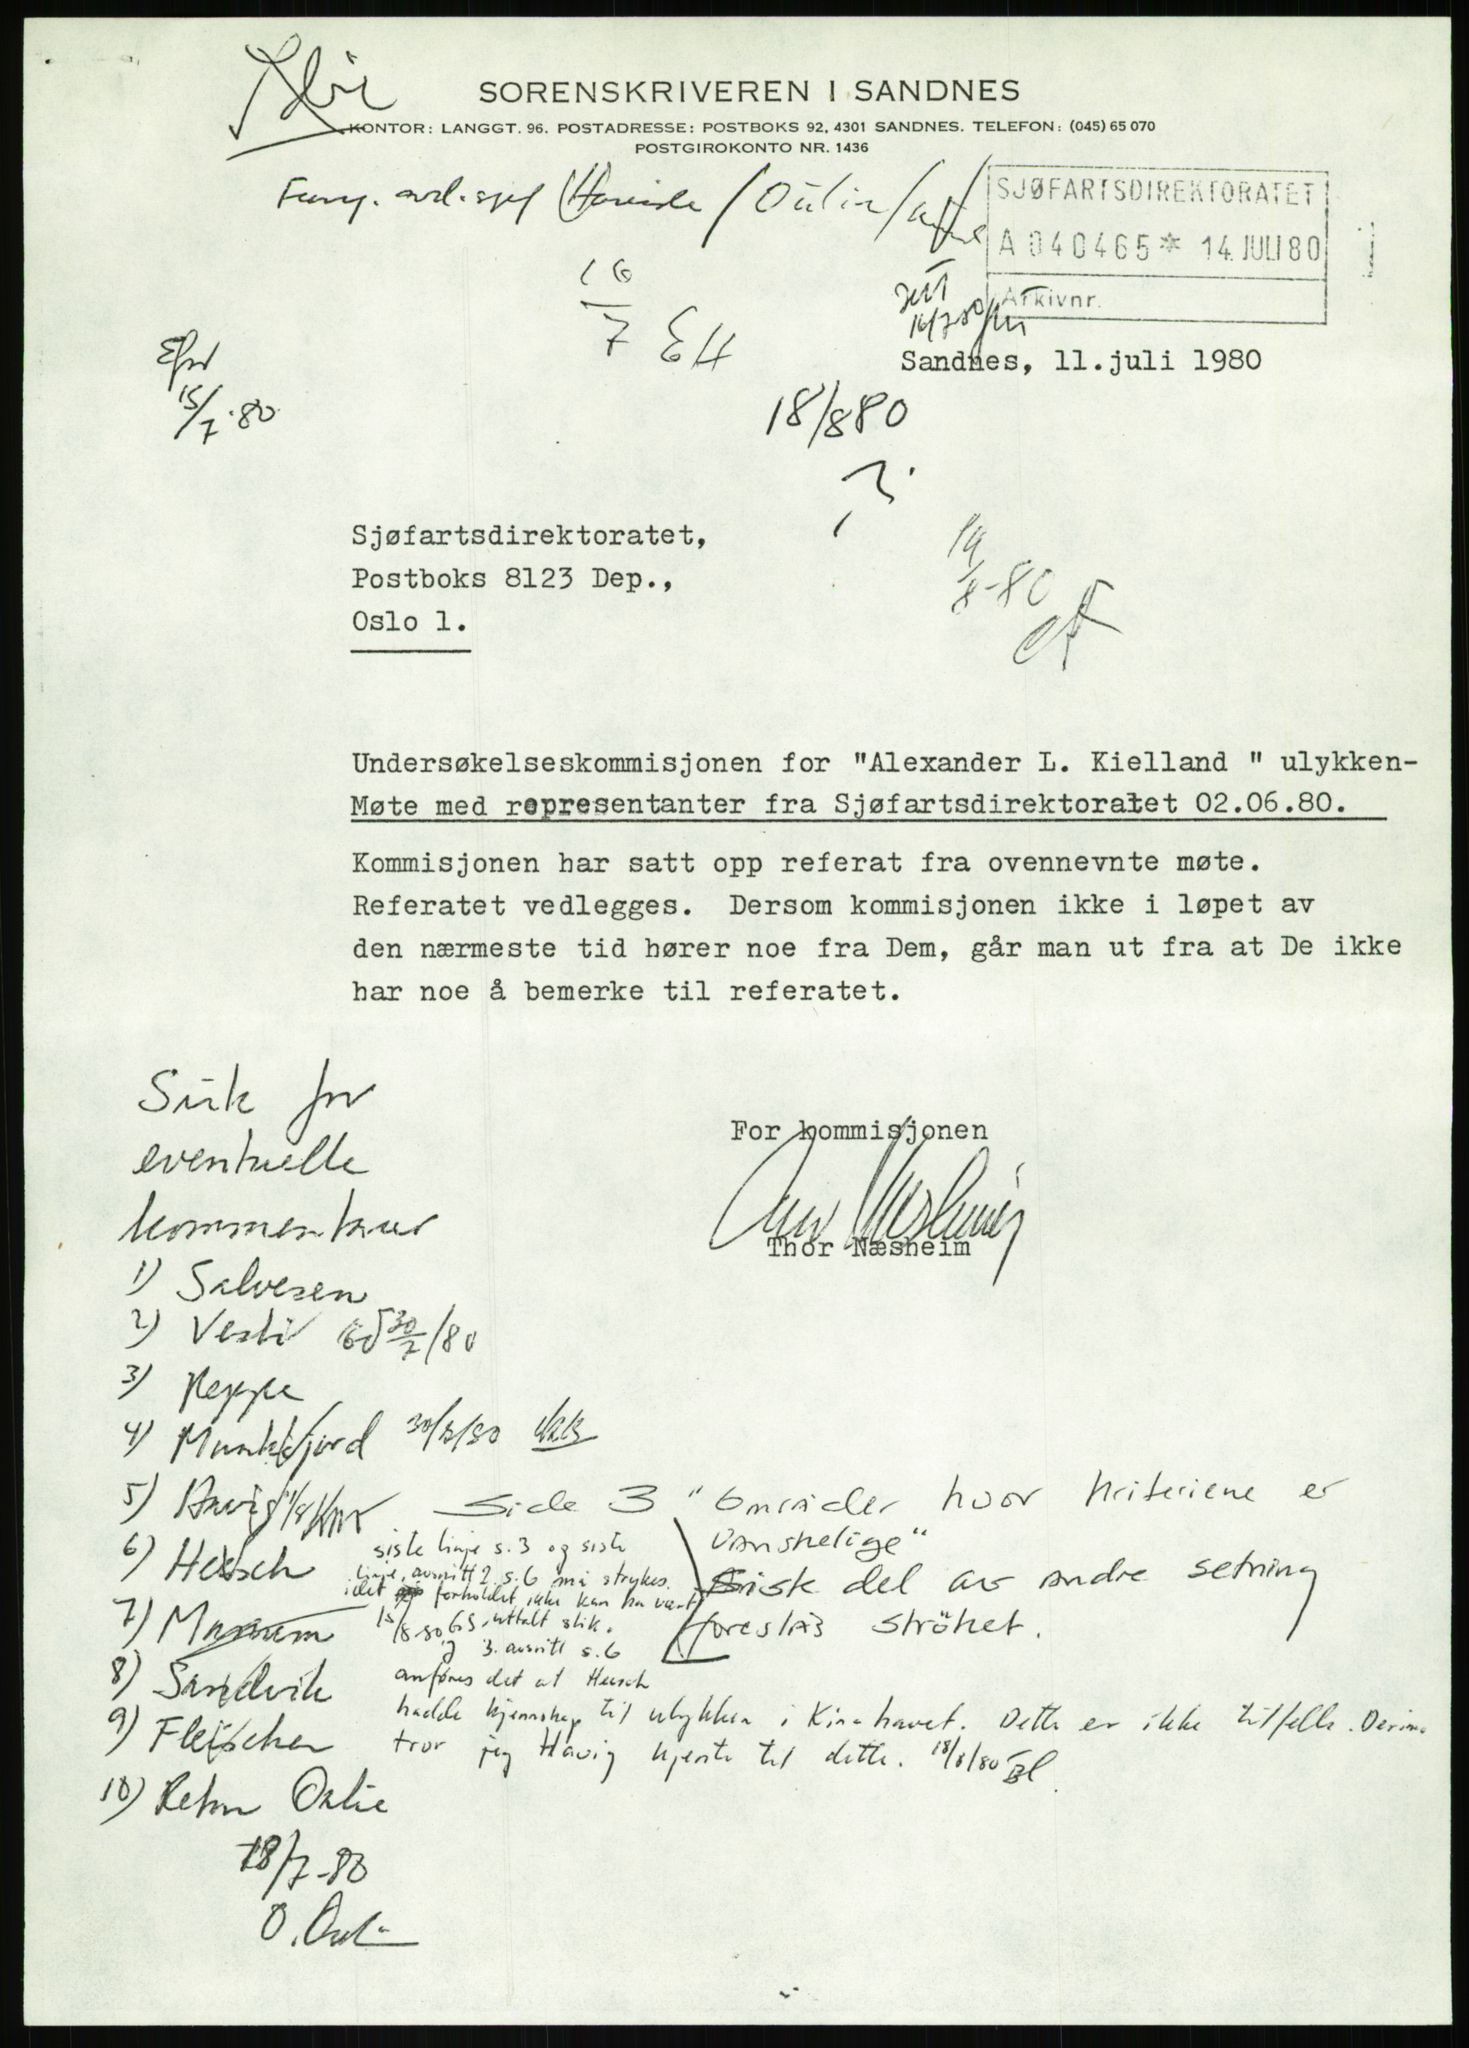 SORENSKRIVEREN I SANDNES
KONTOR: LANGGT. 96. POSTADRESSE: POSTBOKS 92, 4301 SANDNES. TELEFON: (045) 65 070
POSTGIROKONTO NR. 1436
SJØFARTSDIREKTORATET
A 040465* 14. JULI 80
Arkivnr.
16/7 EH
16/7 80
Sandnes, 11.juli 1980
15/7-80
18/8 80
Sjøfartsdirektoratet,
19/8-80
Postboks 8123 Dep.,
Oslo 1.
Undersøkelseskommisjonen for "Alexander L. Kielland " ulykken-
Møte med representanter fra Sjøfartsdirektoratet 02.06.80.
Kommisjonen har satt opp referat fra ovennevnte møte.
Referatet vedlegges. Dersom kommisjonen ikke i løpet av
den nærmeste tid hører noe fra Dem, går man ut fra at De ikke
har noe å bemerke til referatet.
For kommisjonen
Thor Næsheim
Sirk for
eventuelle
kommentarer
1) Salvesen
2) 30/7/80
3) Heppe
4) Munkfjord
5) Havig
6) Hersch
7)
8) Sandvik
9) Fleischer
10) Retur
18/7-80
Side 3 "Områder hvor kriteriene er
vanskelige"
siste del av andre setning
foreslås strøket.
siste linje s. 3 og siste
linje, avsnitt 2 s. 6 må strykes.
idet forholdet ikke kan ha vært
uttalt slik.
3. avsnitt s. 6
anføres det at Hersch
hadde kjennskap til ulykken i Kinahavet. Dette er ikke tilfelle.
tror jeg Havig kjente til dette. 18/8/80